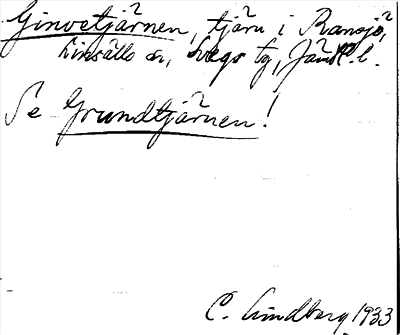 Ginvetjärnen, tjärn i Ransjö,
Linsälls sn, Svegs tg, Jämtl. l.
Se Grundtjärnen!
C. Lindberg 1933